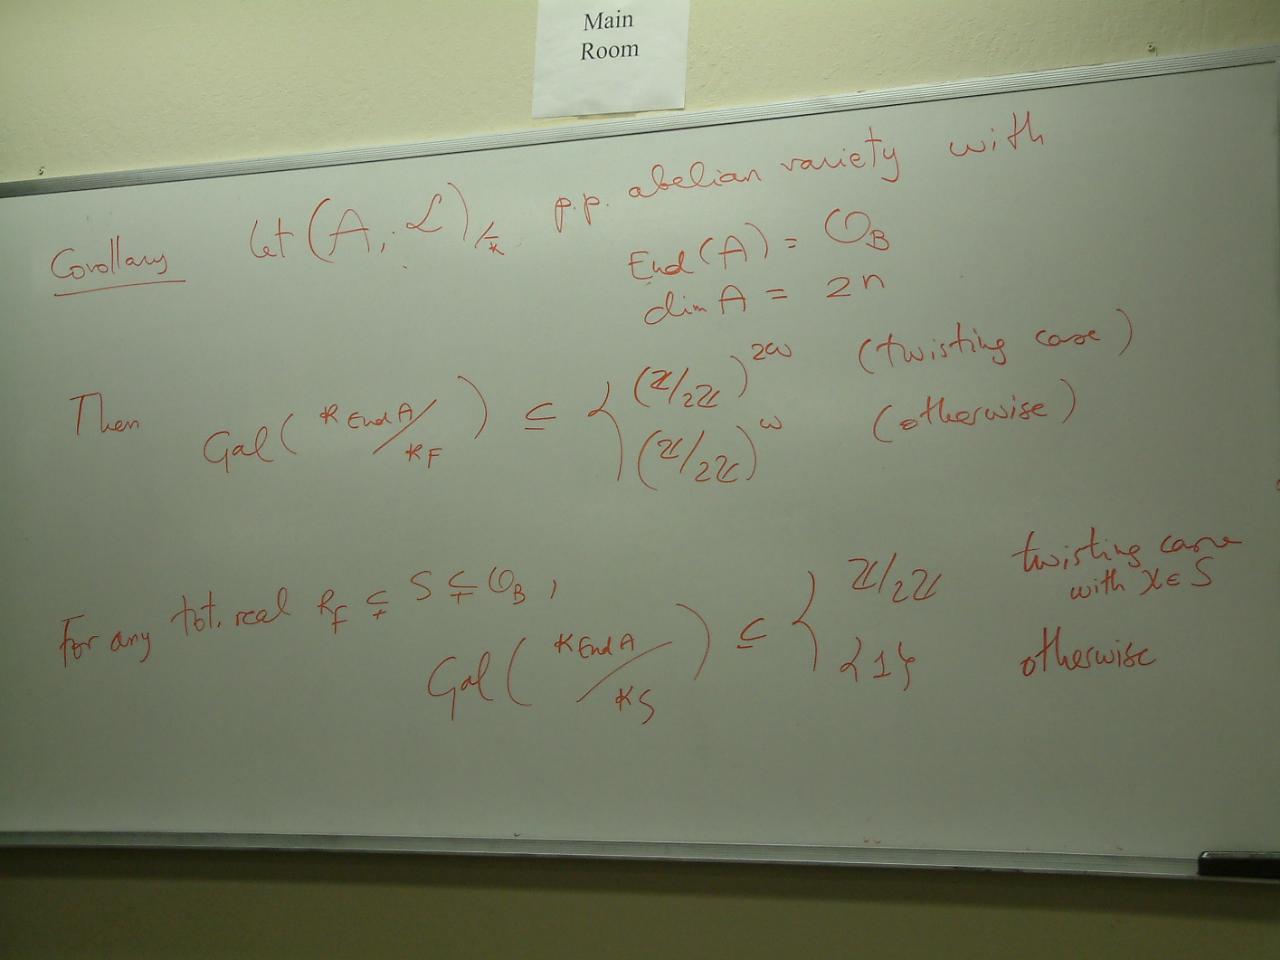 Main
Room
Corollary Let (A, ℒ)/k p.p. abelian variety with
End(A) = O_B
dim A = 2n
Then Gal(K_End A / K_F) ⊆ { (ℤ/2ℤ)^2ω (twisting case)
(ℤ/2ℤ)^ω (otherwise)
For any tot. real R_F ⊊ S ⊊ O_B,
Gal(K_End A / K_S) ⊆ { ℤ/2ℤ twisting case with χ∈S
{1} otherwise